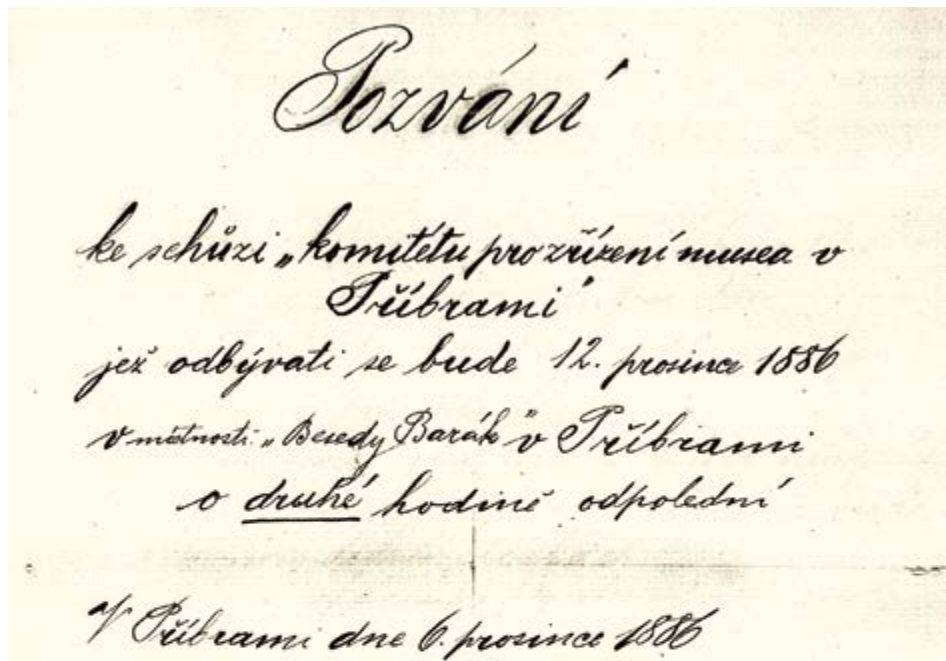 Pozvání
ke schůzi „komitétu pro zřízení musea v
Příbrami“
jež odbývati se bude 12. prosince 1886
v místnosti „Besedy Barák“ v Příbrami
o druhé hodině odpolední
V Příbrami dne 6. prosince 1886